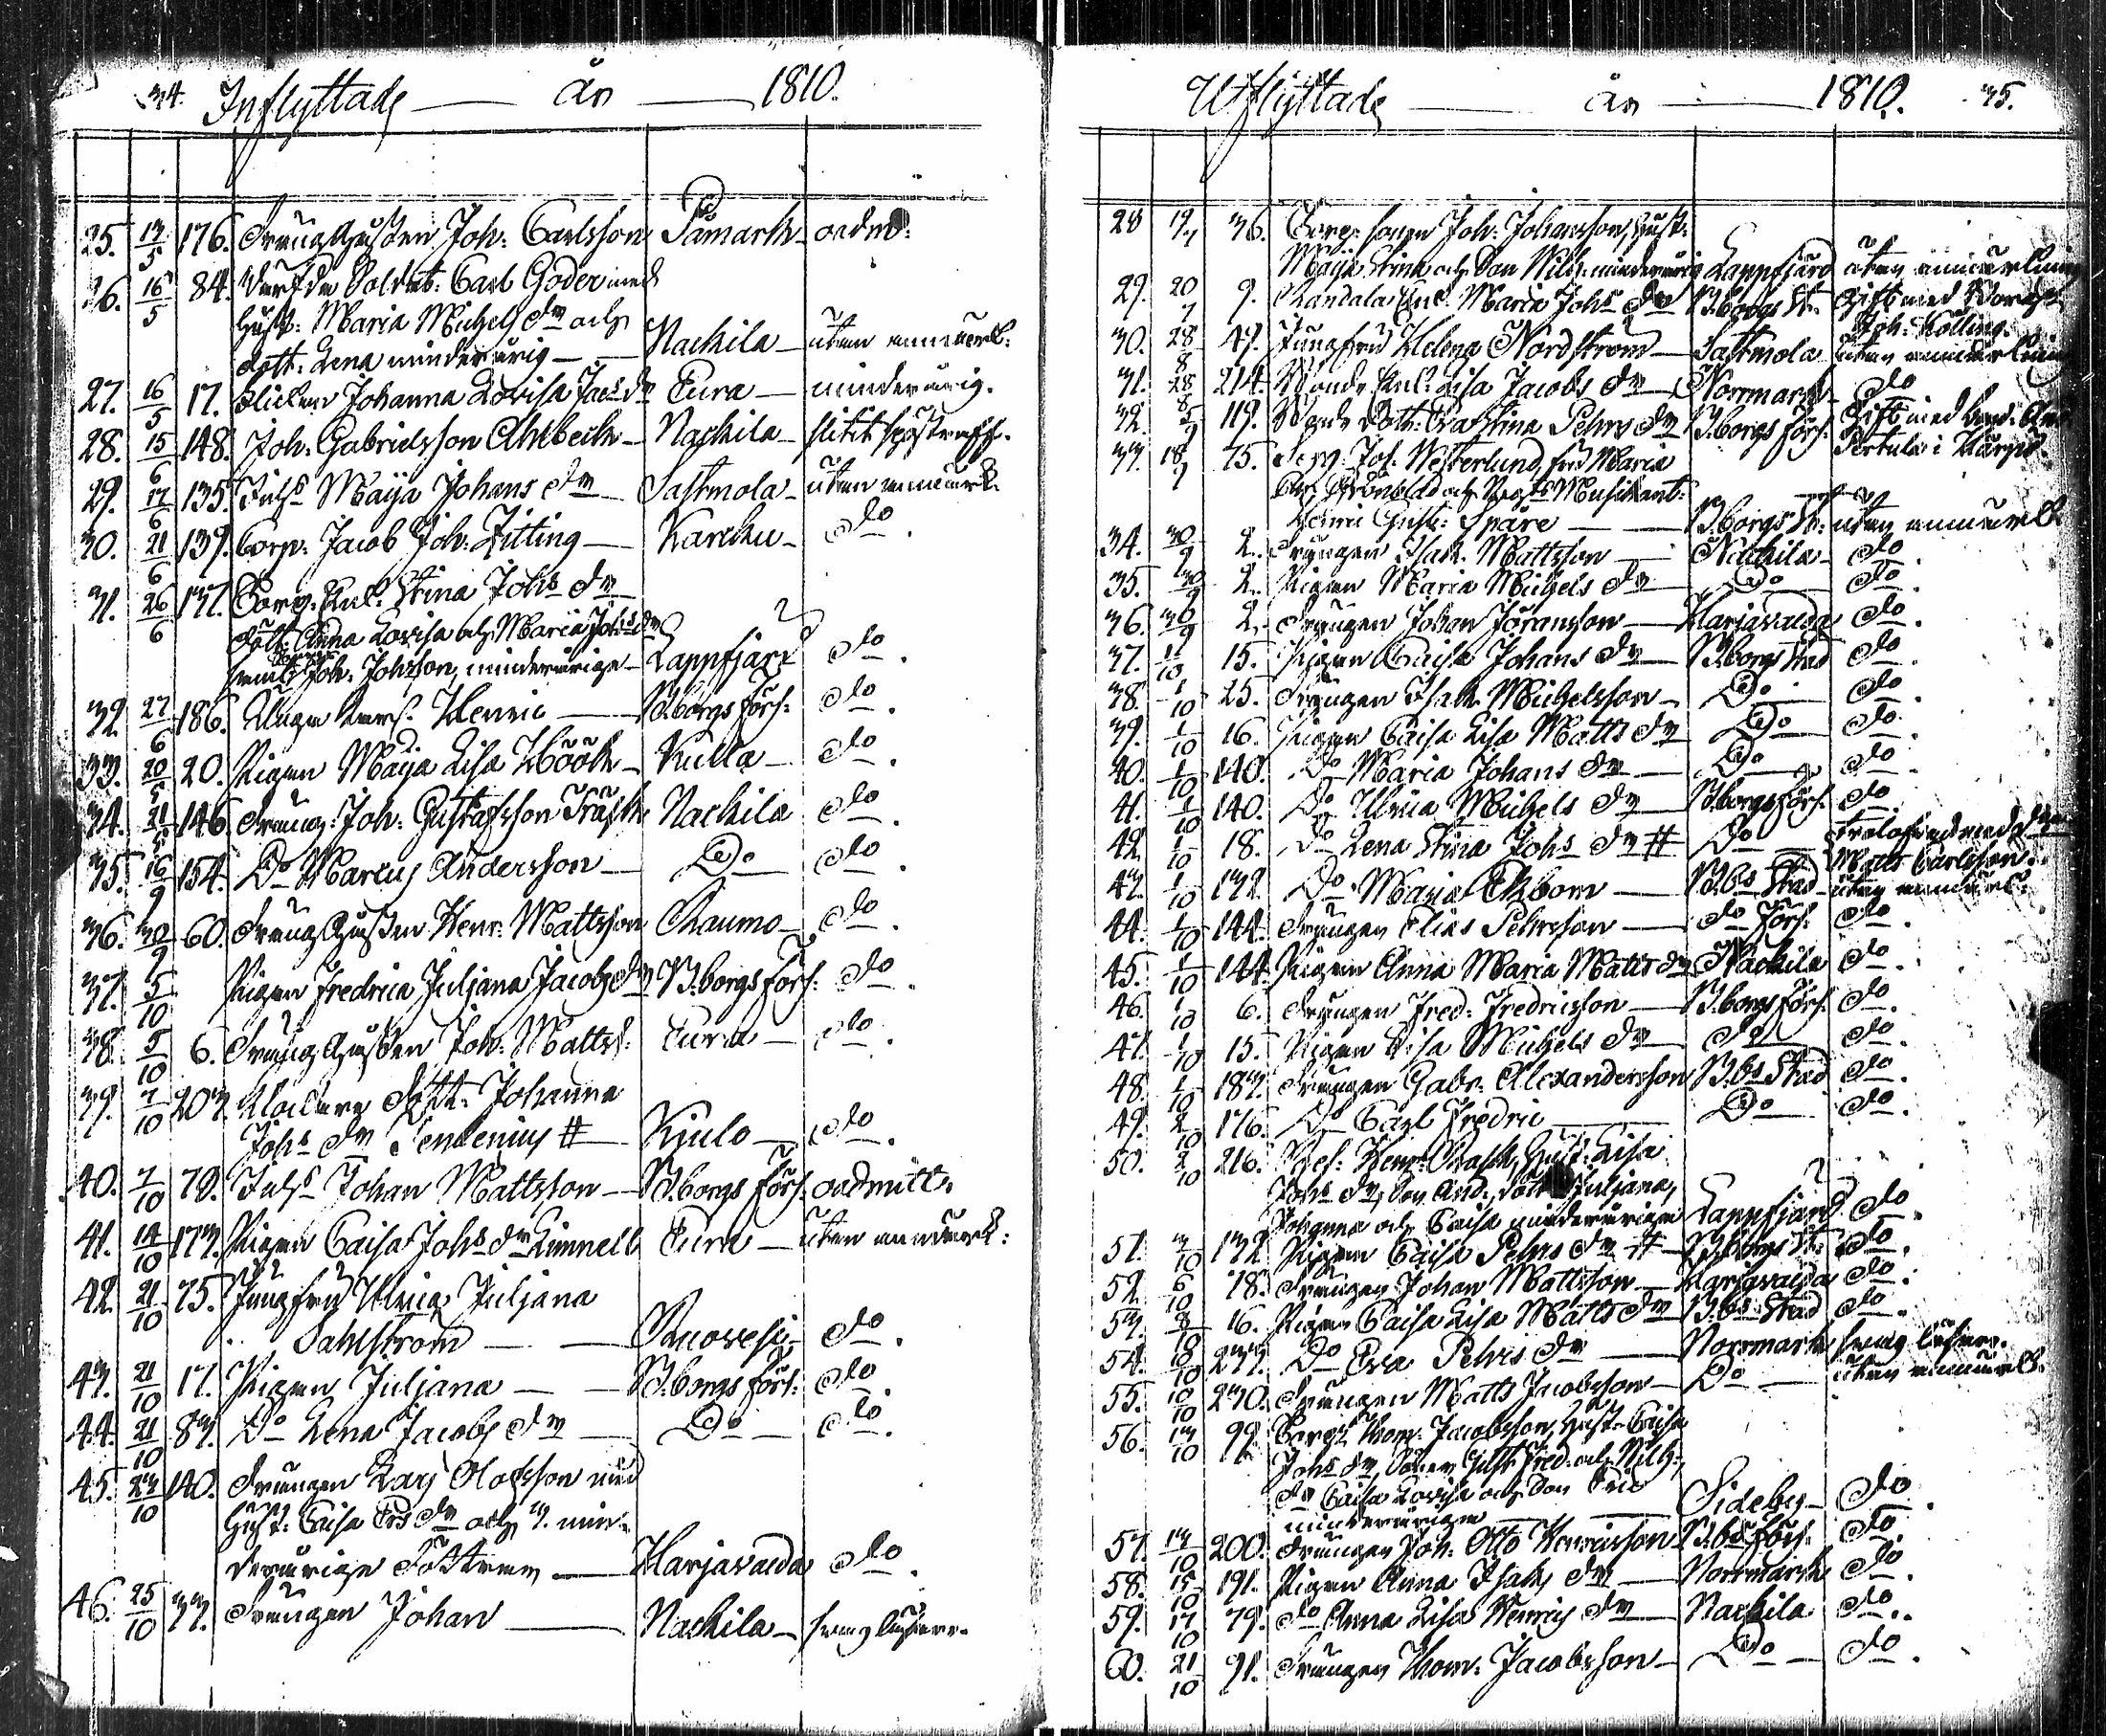 34. Inflyttade — År — 1810.
25. 13/5 176. Dräng Gossen Joh: Carlsson Påmark — oadm:
26. 16/5 84. Carl Goder med
Hust: Maria Michels dr och
dott: Lena minderårig — Nackila — utan anmärk:
27. 16/5 17. Flickan Johanna Lovisa Jacs dr Eura — minderårig.
28. 15/6 148. Joh: Gabrielsson Ahlbeck — Nackila —
29. 17/6 135. Inhs Maija Johans dr — Sastmola — utan anmärk.
30. 21/6 139. Corp: Jacob Joh: Zitting — Karcku — do.
31. 26/6 137. Stina Johs dr
dött: Anna Lovisa och Maria Johs dr
samt Joh: Johsson, minderårige — Lappfjärd do.
32. 27/6 186. Henric — B:borgs förs: do.
33. 20/5 20. Pigan Maija Lisa Höök — Kulla — do.
34. 21/5 146. Dräng: Joh: Gustafsson Träsk Nackila do.
35. 16/9 154. Do Marcus Andersson — Do — do.
36. 30/9 60. Dräng Gossen Henr: Mattsson Raumo — do.
37. 5/10 Pigan Fredrica Juliana Jacobs dr B:borgs förs: do.
38. 5/10 6. Dräng Gossen Joh: Matts: Eura — do.
39. 7/10 203. Klockare Dött: Johanna
Johs dr # — Kiulo — do.
40. 7/10 79. Inhs Johan Mattsson — B:borgs förs: oadmitt.
41. 14/10 173. Pigan Caisa Johs dr Limnell Eura — utan anmärk:
42. 21/10 75. Jungfru Ulrica Juliana
Sahlström — Ruovesi — do.
43. 21/10 17. Pigan Juliana — B:borgs förs: do.
44. 21/10 83. Do Lena Jacobs dr — Do — do.
45. 23/10 140. Drängen Lars Olofsson med
Hust: Caisa Ers dr och 3. min-
derårige Döttrar — Harjavalda do.
46. 25/10 33. Drängen Johan — Nackila — svag läsare.
Utflyttade — år — 1810. 35.
28 19/7 36. Joh: Johansson, Hust:
Maija Stina och Son Wilh: minderårig Lappfjärd utan anmärkning
29. 20/7 9. Maria Johs dr B:borgs St: Gift med
Joh: Kölling.
30. 28/8 49. Jungfru Helena Nordström — Sastmola utan anmärkning
31. 28/8 214. Bonde Enk: Lisa Jacobs dr — Norrmark — do
32. 5/9 119. Bonde Dott: Stina Pehrs dr B:borgs förs: Gift med
Pertula i
33. 18/9 75. Joh: Westerlund, fru Maria
Grönblad och Musikant:
Henric Gust: Spåre — B:borgs St: utan anmärk
34. 30/9 2. Drängen Isak Mattsson — Nackila — do.
35. 30/9 2. Pigan Maria Michels dr — Do — do.
36. 30/9 2. Drängen Johan Göransson — Harjavalda do.
37. 1/10 15. Pigan Caisa Johans dr — B:borgs Stad do
38. 1/10 25. Drängen Isak Michelsson — Do — do.
39. 1/10 16. Pigan Caisa Lisa Matts dr Do — do.
40. 1/10 140. Do Maria Johans dr — Do — do.
41. 1/10 140. Do Ulrica Michels dr — B:borgs förs: do.
42. 1/10 18. Do Lena Stina Johs dr # Do — Trolofvad med
Matts Carlsson.
43. 1/10 132. Do Maria Ekbom — B:bs Stad utan anmärk:
44. 1/10 144. Drängen Elias Pehrsson — do förs: do.
45. 1/10 144. Pigan Anna Maria Matts dr Nackila do.
46. 1/10 6. Drängen Fred: Fredricsson — B:borgs förs: do.
47. 1/10 15. Pigan Lisa Michels dr — do — do.
48. 1/10 183. Drängen Gabr: Alexandersson B:bs Stad do.
49. 2/10 176. Do Carl Fredric — Do — do.
50. 2/10 216. Henr: Rask, Hust: Lisa
Johs dr, Son And:, dött: Juliana,
Johanna och Caisa minderårige Lappfjärd do.
51. 3/10 132. Pigan Caisa Pehrs dr # — B:borgs St: do.
52. 6/10 18. Drängen Johan Mattsson — Harjavalda do.
53. 8/10 16. Pigan Caisa Lisa Matts dr B:bs Stad do.
54. 10/10 233. Do Eva Pehrs dr — Norrmark svag läsare.
55. 10/10 230. Drängen Matts Jacobsson — Do — utan anmärk.
56. 13/10 99. Thom: Jacobsson, Hust: Caisa
Johs dr, Söner Gust: Fred: och Wilh:,
dr Caisa Lovisa och Son Eric
minderårige — Sideby — do.
57. 13/10 200. Drängen Joh: Otto Henricsson B:bs förs: do.
58. 15/10 191. Pigan Anna Isaks dr — Norrmark do.
59. 17/10 79. do Anna Lisa Henrics dr — Nackila do.
60. 21/10 91. Drängen Thom: Jacobsson — Do — do.